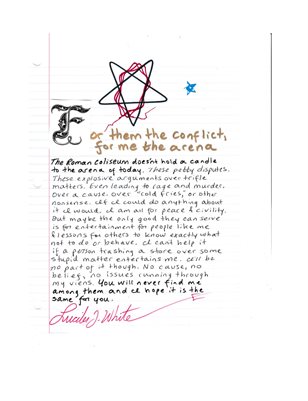 For them the conflict,
for me the arena
The Roman Coliseum doesn't hold a candle
to the arena of today. These petty disputes.
These explosive arguments over trifle
matters. Even leading to rage and murder.
Over a cause. Over "cold fries," or other
nonsense. If I could do anything about
it I would. I am all for peace & civility.
But maybe the only good they can serve
is for entertainment for people like me
& lessons for others to know exactly what
not to do or behave. I can't help it
if a person trashing a store over some
stupid matter entertains me. I'll be
no part of it though. No cause, no
belief, no issues running through
my viens. You will never find me
among them and I hope it is the
same for you.
J. White